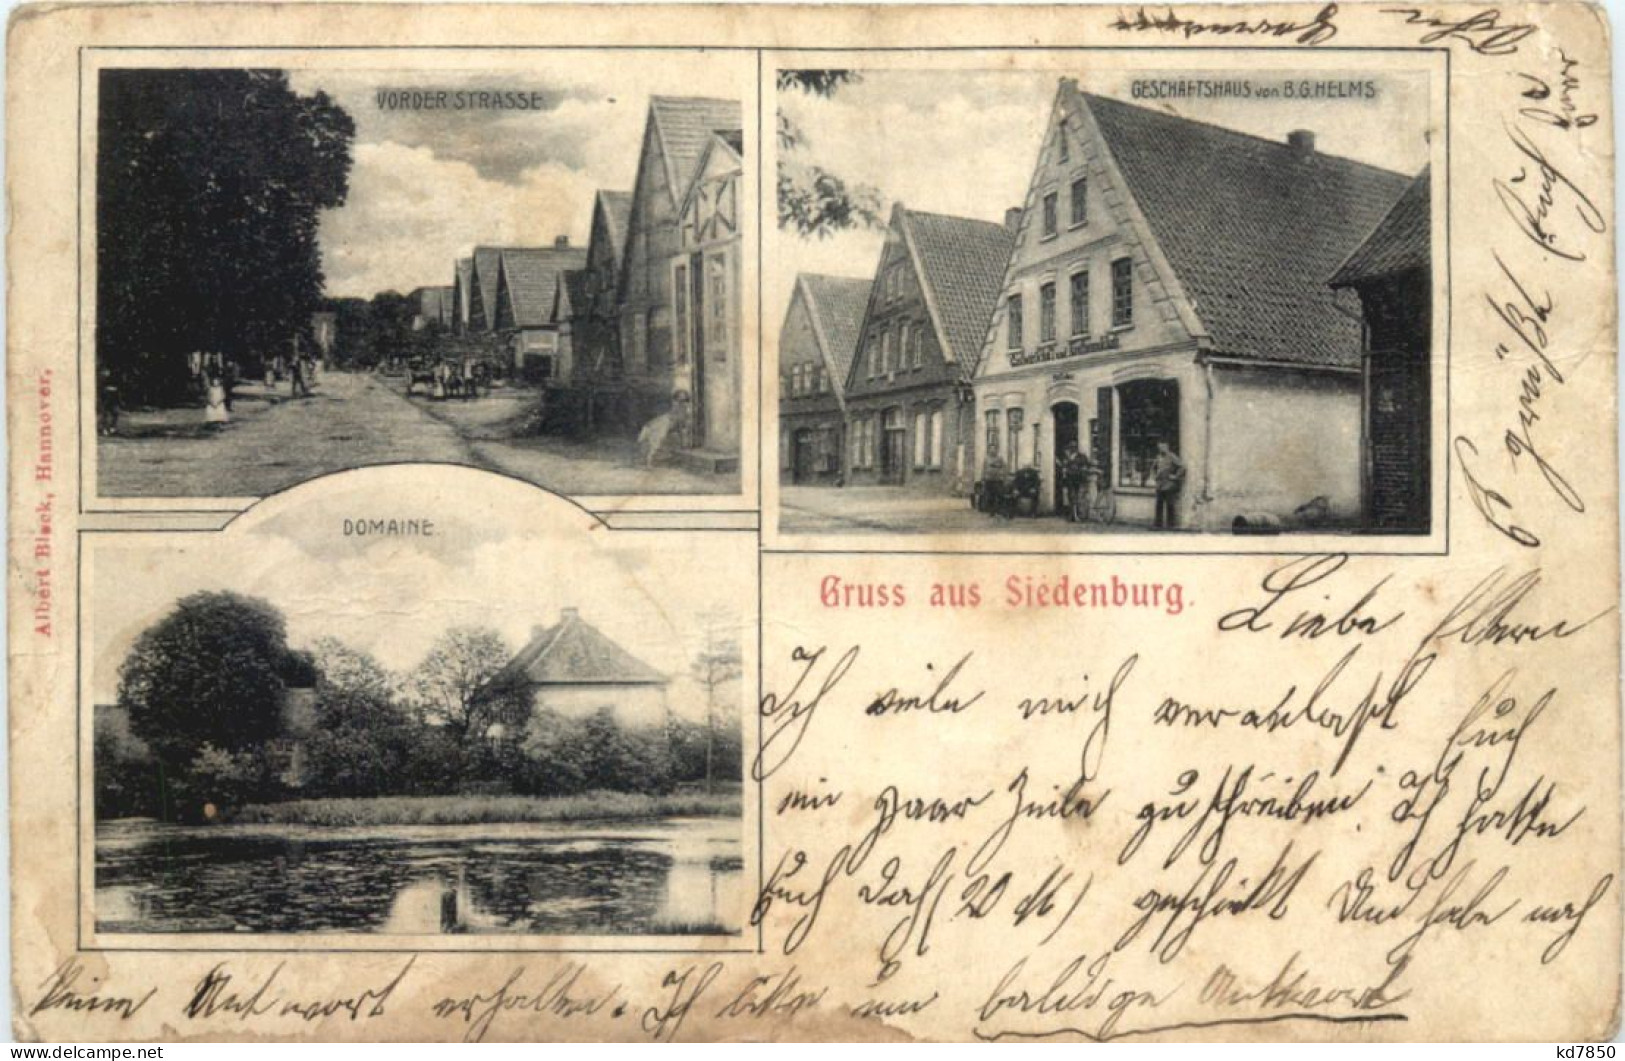 VORDER STRASSE
GESCHÄFTSHAUS von B.G. HELMS
DOMAINE.
Albert Block, Hannover.
Gruss aus Siedenburg.
Liebe Eltern
Ich viele mich veranlaßt Euch
ein paar Zeile zu schreiben. Ich hatte
Euch doch (20 M) geschickt Und habe noch
keine Antwort erhalten. Ich bitte um baldige Antwort
Es grüßt Euch
Ihr Hermann
kd7850